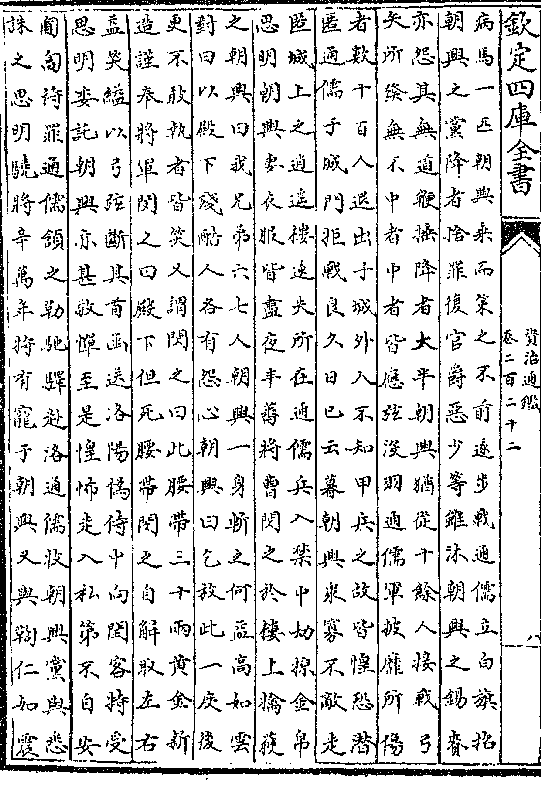 欽定四庫全書
資治通鑑
卷二百二十二
八
病馬一匹朝興乘而策之不前遂步戰通儒立白旗招
朝興之黨降者恕罪復官爵惡少等雖沐朝興之錫賚
亦怨其無道鞭撻降者太半朝興猶從十餘人接戰弓
矢所發無不中者中者皆應弦沒羽通儒軍披靡所傷
者數十百人退出于城外人不知甲兵之故皆惶恐潛
匿通儒于城門拒戰良久日已云暮朝興衆寡不敵走
匿城上之逍遥樓遂失所在通儒兵入禁中劫掠金帛
思明朝興妻衣服皆盡夜半蕃將曹閔之於樓上擒獲
之朝興曰我兄弟六七人朝興一身斬之何益高如雲
對曰以殿下殘酷人各有怨心朝興曰乞放此一度後
更不敢執者皆笑又謂閔之曰此腰帶三十兩黄金新
造謹奉將軍閔之曰殿下但死腰帶閔之自解取左右
益笑縊以弓弦斷其首函送洛陽偽侍中向閏客特受
思明委託朝興亦甚敬憚至是惶怖走入私第不自安
匍匐待罪通儒領之勒馳驛赴洛通儒收朝興黨與悉
誅之思明驍將辛萬年特有寵于朝興又與鞠仁如震